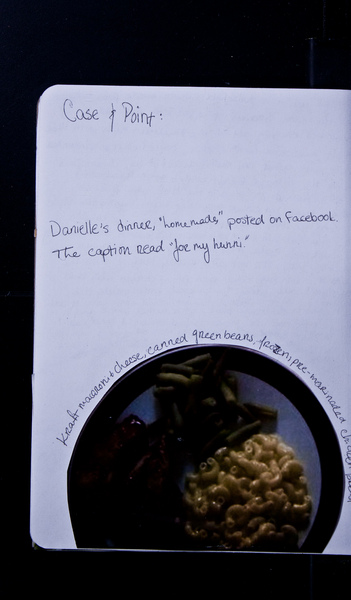 Case & Point:
Danielle's dinner, "homemade," posted on Facebook.
The caption read "for my hunni."
Kraft macaroni & cheese, canned green beans, frozen pre-marinaded chicken